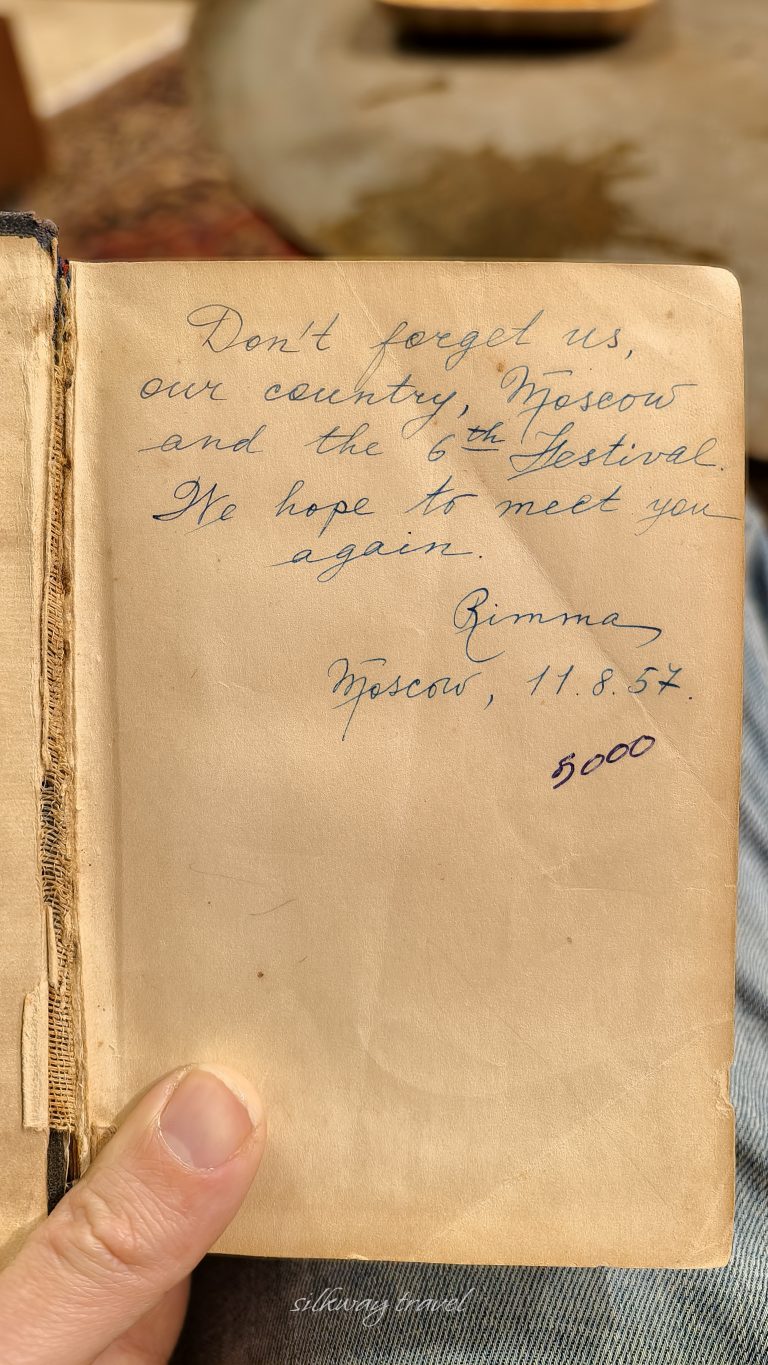 Don't forget us,
our country, Moscow
and the 6th Festival.
We hope to meet you
again.
Rimma
Moscow, 11.8.57.
5000
silkway travel